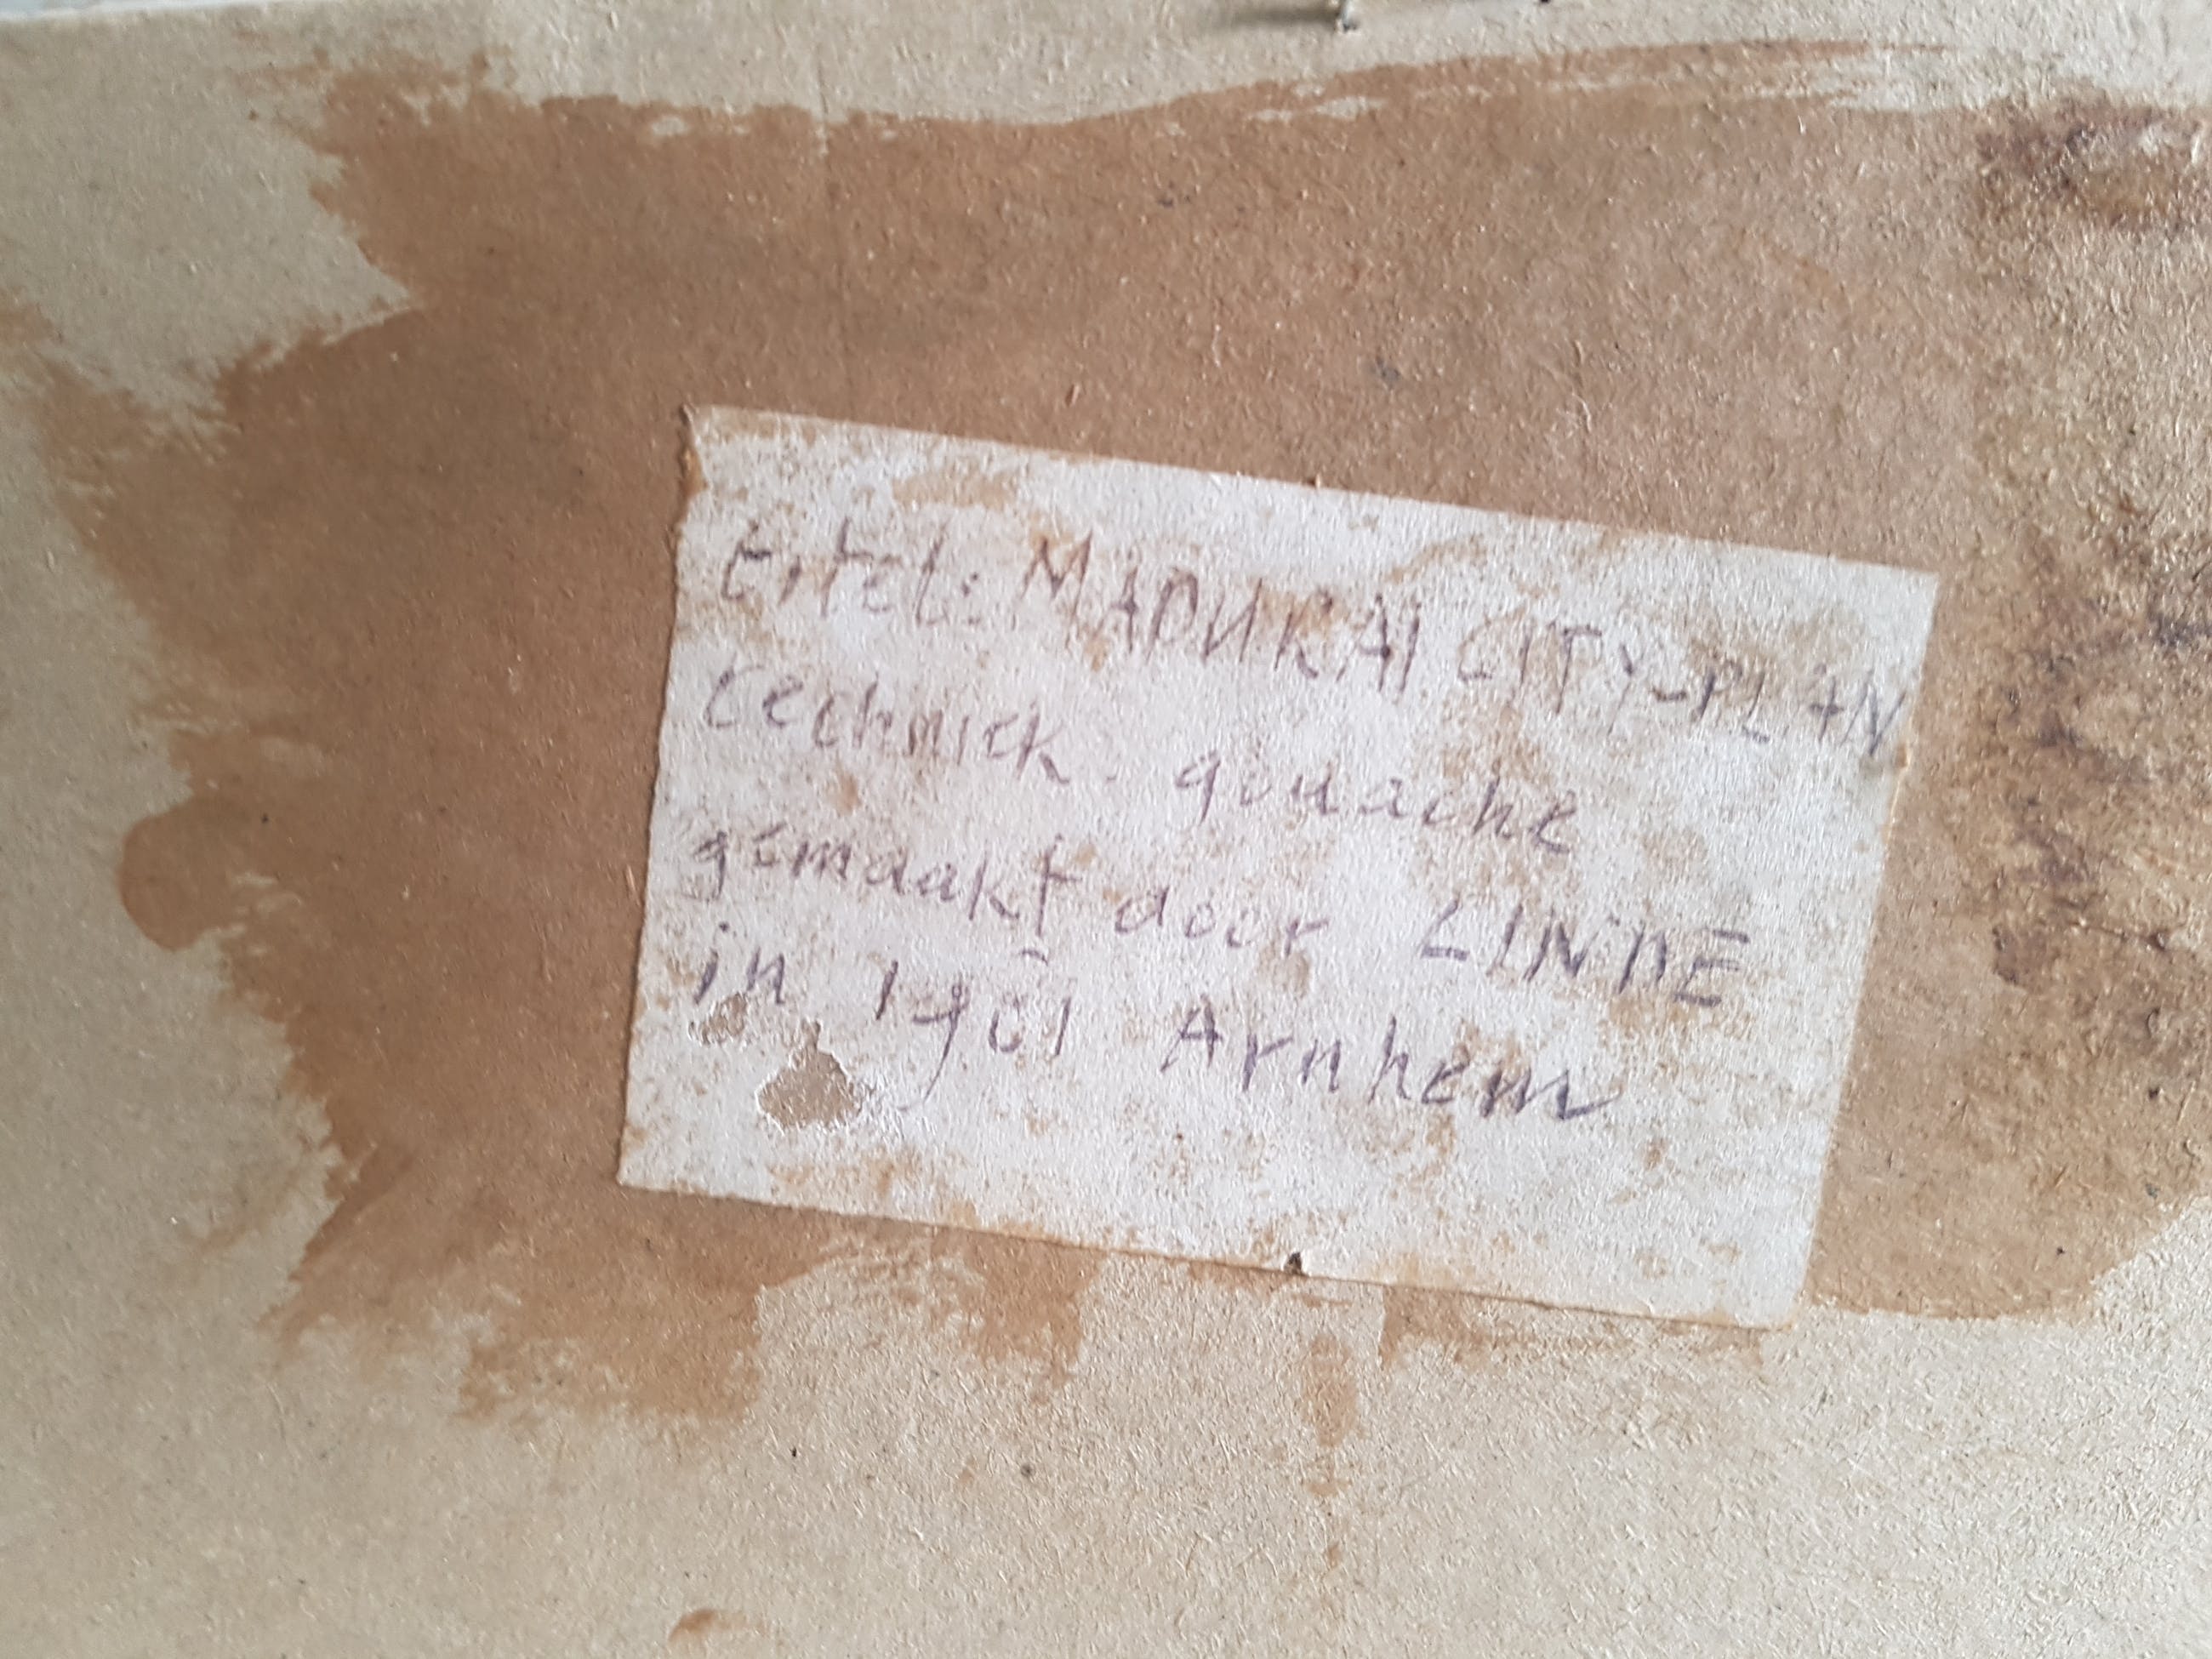 titel: MADURAI CITY-PLAN
techniek. gouache
gemaakt door LINDE
in Arnhem